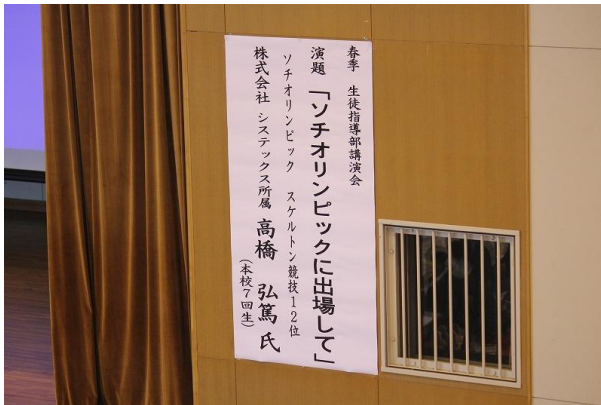 春季　生徒指導部講演会
演題　「ソチオリンピックに出場して」
ソチオリンピック　スケルトン競技12位
株式会社　システックス所属　高橋　弘篤　氏
（本校7回生）